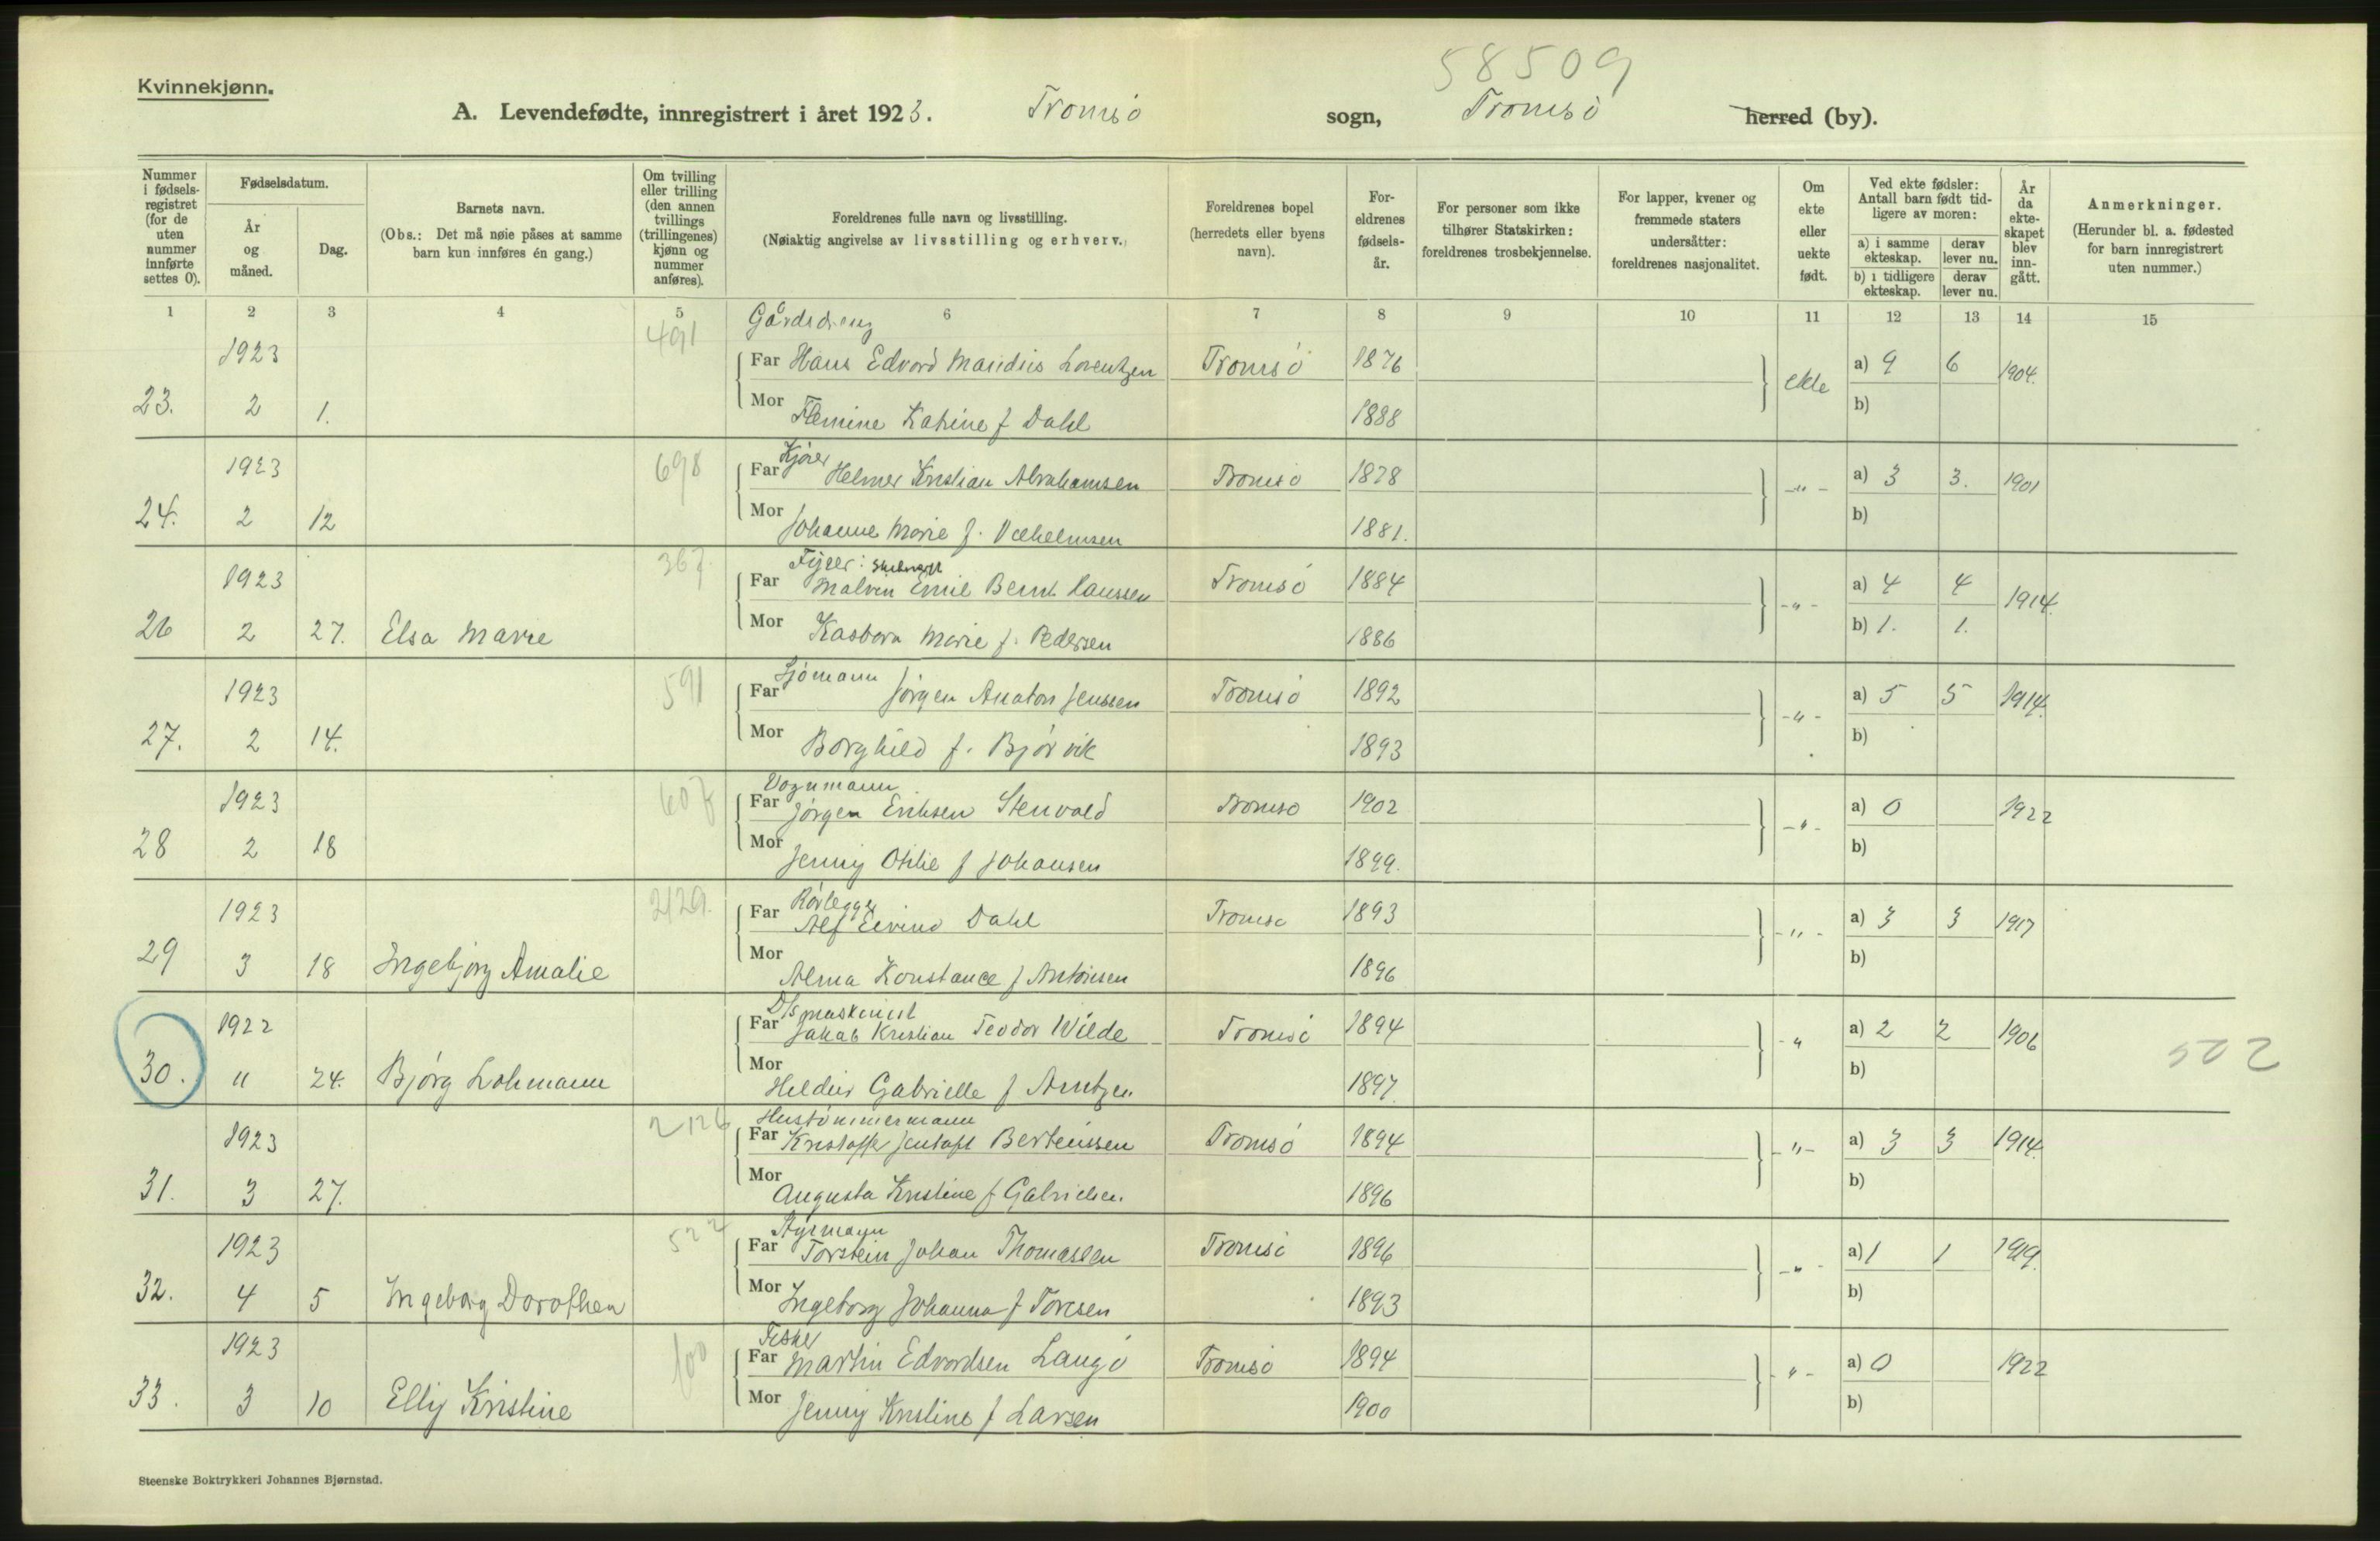 58509
Kvinnekjønn.
A. Levendefødte, innregistrert i året 1923. Tromsö sogn, Tromsö herred (by).
Nummer i fødsels-registret (for de uten nummer innførte settes 0).
Fødselsdatum.
År og måned.
Dag.
Barnets navn.
(Obs.: Det må nøie påses at samme barn kun innføres én gang.)
Om tvilling eller trilling (den annen tvillings (trillingenes) kjønn og nummer anføres).
Foreldrenes fulle navn og livsstilling.
(Nøiaktig angivelse av livsstilling og erhverv.)
Foreldrenes bopel (herredets eller byens navn).
For-eldrenes fødsels-år.
For personer som ikke tilhører Statskirken: foreldrenes trosbekjennelse.
For lapper, kvener og fremmede staters undersåtter: foreldrenes nasjonalitet.
Om ekte eller uekte født.
Ved ekte fødsler: Antall barn født tid-ligere av moren:
a) i samme ekteskap. derav lever nu.
b) i tidligere ekteskap. derav lever nu.
År da ekte-skapet blev inn-gått.
Anmerkninger.
(Herunder bl. a. fødested for barn innregistrert uten nummer.)
1 2 3 4 5 6 7 8 9 10 11 12 13 14 15
491 Gårdsdreng
1923 Far Hans Edvard Maridius Lorentzen Tromsö 1876 ekte a) 9 6 1904.
23. 2 1. Mor Katrine f Dahl 1888 b)
698 Kjörer
1923 Far Helmer Kristian Abrahamsen Tromsö 1878 -"- a) 3 3. 1901
24. 2 12 Mor Johanne Marie f. Vilhelmsen 1881. b)
367.
1923 Far Malvin Emil Bernt Hanssen Tromsö 1884 -"- a) 4 4 1914.
26 2 27. Elsa Marie Mor Marie f. Pedersen 1886 b) 1. 1.
591 Sjömann
1923 Far Jörgen Anaton Jenssen Tromsö 1892 -"- a) 5 5 1914.
27. 2 14. Mor Borghild f. Bjørvik 1893 b)
607 Vognmann
1923 Far Jörgen Eriksen Stenvold Tromsö 1902 -"- a) 0 1922
28 2 18 Mor Jenny Otilie f Johansen 1899. b)
2129. Rörlegger
1923 Far Alf Eivind Dahl Tromsö 1893 -"- a) 3 3 1917
29 3 18 Ingebjørg Amalie Mor Alma Konstance f Antonsen 1896 b)
D/s maskinist
1922 Far Jakob Kristian Teodor Wilde Tromsö 1894 -"- a) 2 2 1906
30. 11 24. Bjørg Lohmann Mor Gabrielle f Arntzen 1897. b) 502
2126 Hustömmermann
1923 Far Kristoffer Bertheussen Tromsö 1894 -"- a) 3 3 1914.
31. 3 27. Mor Augusta Kristine f Gabrielsen 1896 b)
522 Styrmann
1923 Far Torstein Johan Thomassen Tromsö 1896 -"- a) 1 1 1919.
32. 4 5 Ingeborg Dorothea Mor Ingeborg Johanna f Toresen 1893 b)
100 Fisker
1923 Far Martin Edvardsen Langö Tromsö 1894 -"- a) 0 1922
33. 3 10 Elly Kristine Mor Jenny Kristine f Larsen 1900 b)
Steenske Boktrykkeri Johannes Bjørnstad.